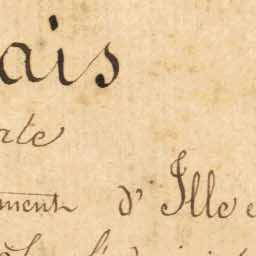 ais
rte
ment d'Ille e